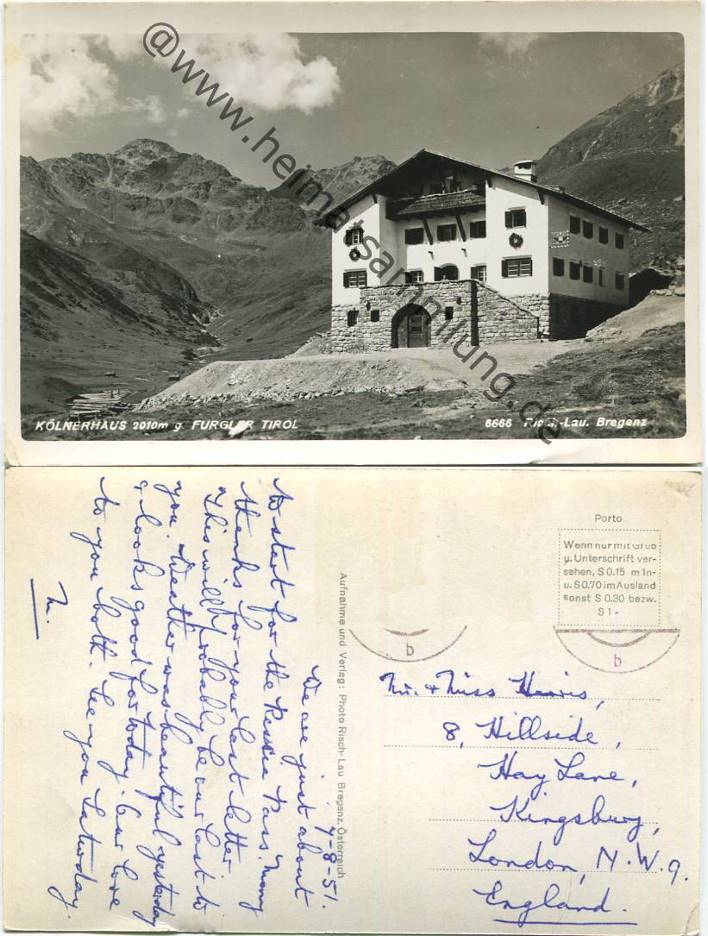 @www.heimatsammlung.de
KÖLNERHAUS 2010m g. FURGLER TIROL
6666 Risch-Lau. Bregenz
7-8-51.
We are just about
to start for the Resia Pass. Many
thanks for your last letter
This will probably be our last to
you. Weather was beautiful yesterday
& looks good for today. Our love
to you both. See you Saturday.
M.
Aufnahme und Verlag: Photo Risch-Lau Bregenz, Österreich
Porto
Wenn nur mit Gruß
u. Unterschrift ver-
sehen, S 0.15 m In-
u. S 0.70 im Ausland
sonst S 0.30 bezw.
S 1-
b
b
Mr. & Miss Harris,
8, Hillside,
Hay Lane,
Kingsbury,
London, N.W.9.
England.